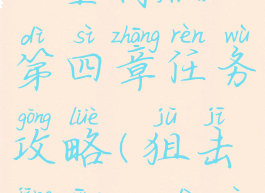 dì sì zhāng rèn wù
第四章任务
gōng lüè jū jī
攻略(狙击